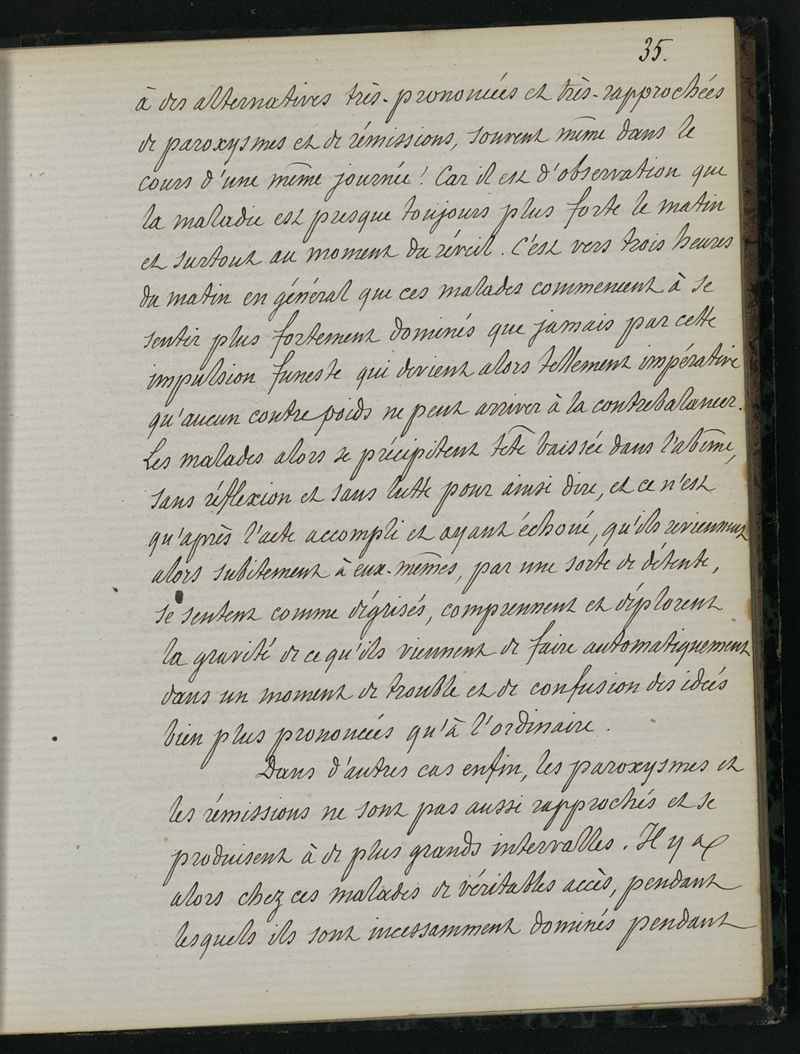 35.
à des alternatives très-prononcées et très-rapprochées
de paroxysmes et de rémissions, souvent même dans le
cours d'une même journée! Car il est d'observation que
la maladie est presque toujours plus forte le matin
et surtout au moment du réveil. C'est vers trois heures
du matin en général que ces malades commencent à se
sentir plus fortement dominés que jamais par cette
impulsion funeste qui devient alors tellement impérative
qu'aucun contre poids ne peut arriver à la contrebalancer.
Les malades alors se précipitent tête baissée dans l'abîme,
sans réflexion et sans lutte pour ainsi dire, et ce n'est
qu'après l'acte accompli et ayant échoué, qu'ils reviennent
alors subitement à eux-mêmes, par une sorte de détente,
se sentent comme dégrisés, comprennent et déplorent
la gravité de ce qu'ils viennent de faire automatiquement
dans un moment de trouble et de confusion des idées
bien plus prononcées qu'à l'ordinaire.
Dans d'autres cas enfin, les paroxysmes et
les rémissions ne sont pas aussi rapprochés et se
produisent à de plus grands intervalles. Il y a
alors chez ces malades de véritables accès, pendant
lesquels ils sont incessamment dominés pendant